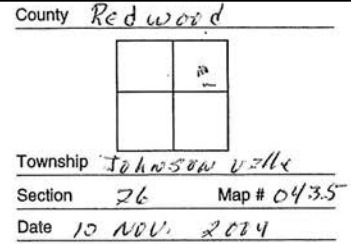 County Redwood
Township Johnson ville
Section 26 Map # 0435
Date 10 NOV. 2004